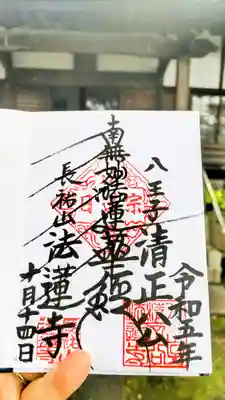 令和五年
八王子清正公
南無妙法蓮華経
長祐山法蓮寺
十月十四日